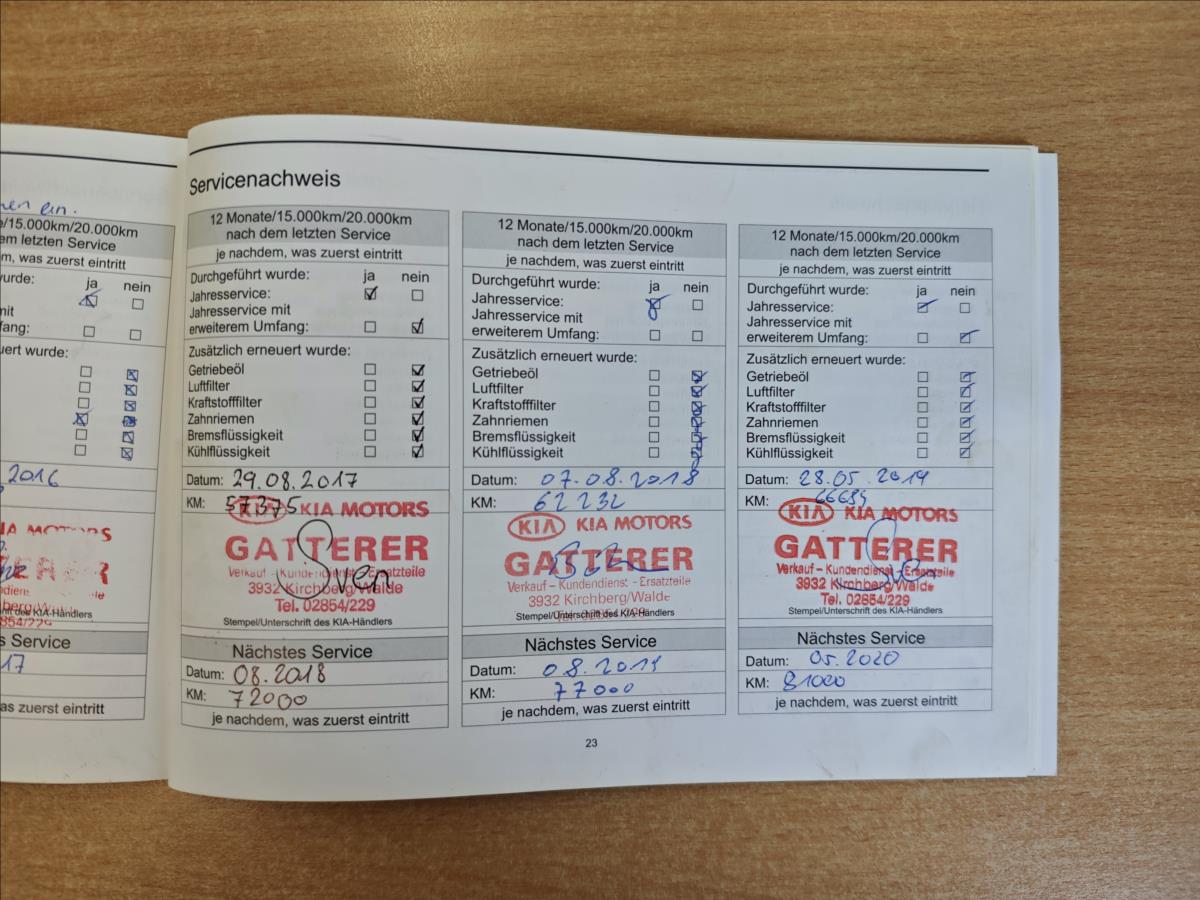 en ein.
/15.000km/20.000km
em letzten Service
m, was zuerst eintritt
urde:
ja nein
mit
fang:
uert wurde:
2016
IA MOTORS
s Service
17
as zuerst eintritt
Servicenachweis
12 Monate/15.000km/20.000km
nach dem letzten Service
je nachdem, was zuerst eintritt
Durchgeführt wurde: ja nein
Jahresservice:
Jahresservice mit
erweiterem Umfang:
Zusätzlich erneuert wurde:
Getriebeöl
Luftfilter
Kraftstofffilter
Zahnriemen
Bremsflüssigkeit
Kühlflüssigkeit
Datum: 29.08.2017
KM: 57375
KIA KIA MOTORS
GATTERER
Verkauf - Kundendienst - Ersatzteile
3932 Kirchberg/Walde
Tel. 02854/229
Sven
Stempel/Unterschrift des KIA-Händlers
Nächstes Service
Datum: 08.2018
KM: 72000
je nachdem, was zuerst eintritt
12 Monate/15.000km/20.000km
nach dem letzten Service
je nachdem, was zuerst eintritt
Durchgeführt wurde: ja nein
Jahresservice:
Jahresservice mit
erweiterem Umfang:
Zusätzlich erneuert wurde:
Getriebeöl
Luftfilter
Kraftstofffilter
Zahnriemen
Bremsflüssigkeit
Kühlflüssigkeit
Datum: 07.08.2018
KM: 62232
KIA KIA MOTORS
GATTERER
Verkauf - Kundendienst - Ersatzteile
3932 Kirchberg/Walde
Stempel/Unterschrift des KIA-Händlers
Nächstes Service
Datum: 08.2019
KM: 77000
je nachdem, was zuerst eintritt
12 Monate/15.000km/20.000km
nach dem letzten Service
je nachdem, was zuerst eintritt
Durchgeführt wurde: ja nein
Jahresservice:
Jahresservice mit
erweiterem Umfang:
Zusätzlich erneuert wurde:
Getriebeöl
Luftfilter
Kraftstofffilter
Zahnriemen
Bremsflüssigkeit
Kühlflüssigkeit
Datum: 28.05.2019
KM:
KIA KIA MOTORS
GATTERER
Verkauf - Kundendienst - Ersatzteile
3932 Kirchberg/Walde
Tel. 02854/229
Stempel/Unterschrift des KIA-Händlers
Nächstes Service
Datum: 05.2020
KM: 81000
je nachdem, was zuerst eintritt
23